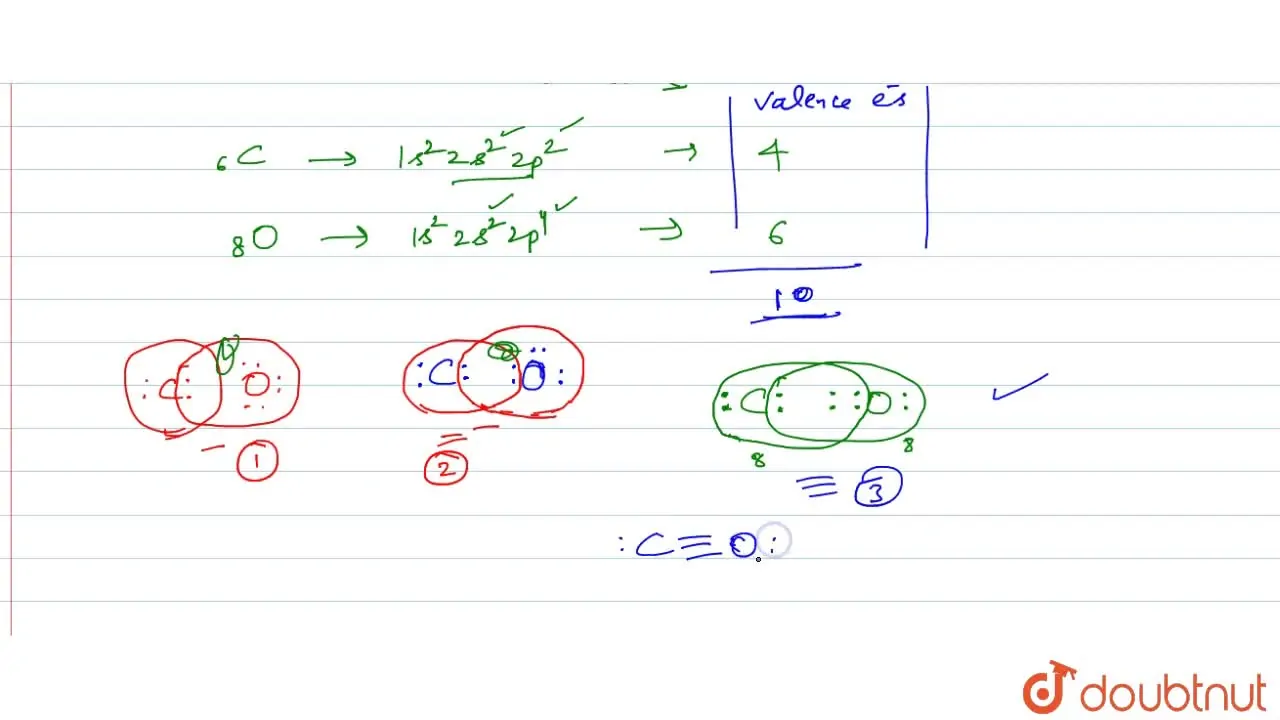 valence e⁻s
₆C → 1s² 2s² 2p² → 4
₈O → 1s² 2s² 2p⁴ → 6
10
:C: :O: :C: :O: :C: ::O:
8 8
- ① = ② ≡ ③
:C≡O:
doubtnut